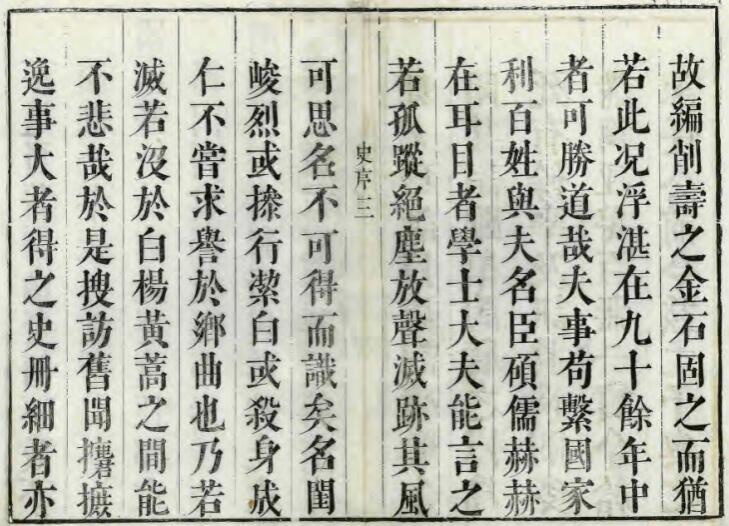 故編削壽之金石固之而猶
若此况浮湛在九十餘年中
者可勝道哉夫事苟繫國家
利百姓與夫名臣碩儒赫赫
在耳目者學士大夫能言之
若孤蹤絕塵放聲滅跡其風
史序三
可思名不可得而識矣名閨
峻烈或摻行潔白或殺身成
仁不嘗求譽於鄉曲也乃若
滅若沒於白楊黃蒿之間能
不悲哉於是搜訪舊聞攟摭
逸事大者得之史冊細者亦